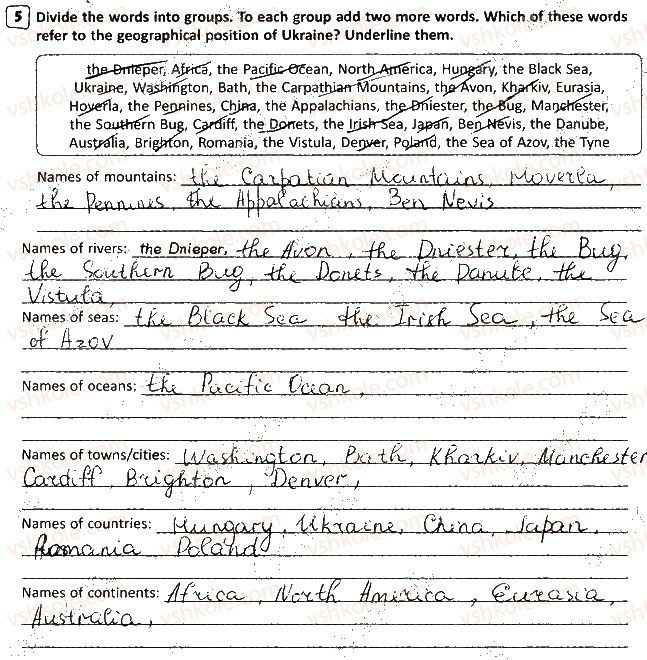 5 Divide the words into groups. To each group add two more words. Which of these words
refer to the geographical position of Ukraine? Underline them.
the Dnieper, Africa, the Pacific Ocean, North America, Hungary, the Black Sea,
Ukraine, Washington, Bath, the Carpathian Mountains, the Avon, Kharkiv, Eurasia,
Hoverla, the Pennines, China, the Appalachians, the Dniester, the Bug, Manchester,
the Southern Bug, Cardiff, the Donets, the Irish Sea, Japan, Ben Nevis, the Danube,
Australia, Brighton, Romania, the Vistula, Denver, Poland, the Sea of Azov, the Tyne
Names of mountains: the Carpatian Mountains, Moverla,
the Pennines, the Appalachians, Ben Nevis
Names of rivers: the Dnieper, the Avon, the Dniester, the Bug,
the Southern Bug, the Donets, the Danube, the
Vistula,
Names of seas: the Black Sea the Irish Sea, the Sea
of Azov
Names of oceans: the Pacific Ocean,
Names of towns/cities: Washington, Bath, Kharkiv, Manchester
Cardiff, Brighton, Denver,
Names of countries: Hungary, Ukraine, China, Japan,
Romania Poland
Names of continents: Africa, North America, Eurasia,
Australia,
vshkole.com